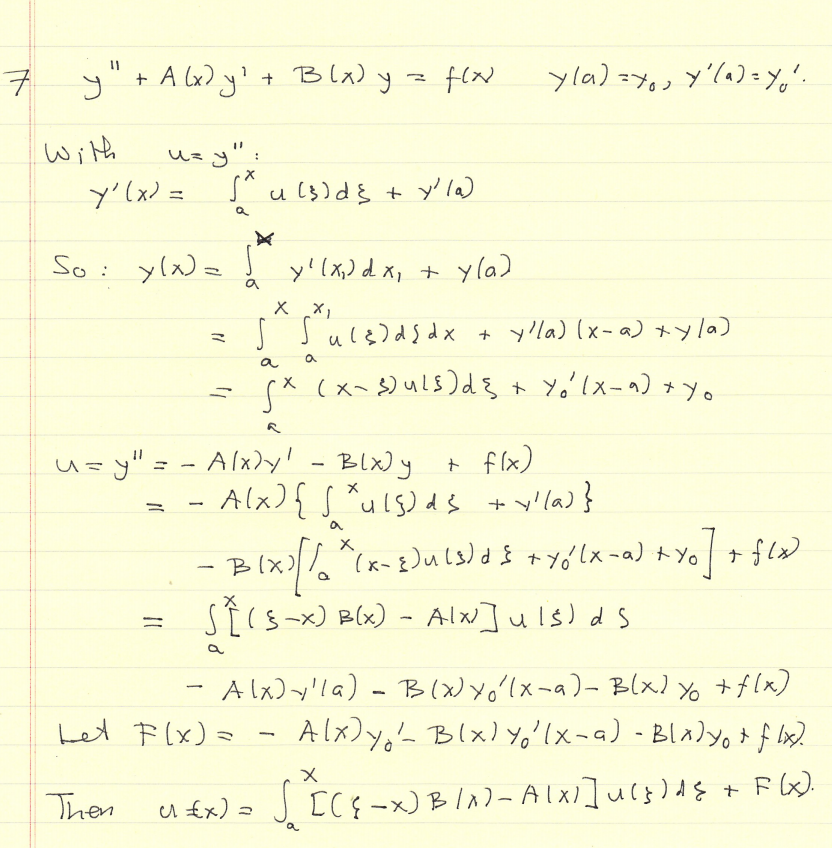 7 y" + A(x) y' + B(x) y = f(x) y(a) = y₀, y'(a) = y₀'.
With u = y" :
y'(x) = ∫ₐˣ u(ξ)dξ + y'(a)
So : y(x) = ∫ₐˣ y'(x₁)dx₁ + y(a)
= ∫ₐˣ ∫ₐˣ¹ u(ξ)dξdx + y'(a)(x-a) + y(a)
= ∫ₐˣ (x-ξ)u(ξ)dξ + y₀'(x-a) + y₀
u = y" = - A(x)y' - B(x)y + f(x)
= - A(x){ ∫ₐˣ u(ξ)dξ + y'(a)}
- B(x)[∫ₐˣ (x-ξ)u(ξ)dξ + y₀'(x-a) + y₀] + f(x)
= ∫ₐˣ [(ξ-x) B(x) - A(x)] u(ξ) dξ
- A(x)y'(a) - B(x)y₀'(x-a) - B(x) y₀ + f(x)
Let F(x) = - A(x)y₀' - B(x)y₀'(x-a) - B(x)y₀ + f(x).
Then u(x) = ∫ₐˣ [(ξ-x) B(x) - A(x)] u(ξ)dξ + F(x).